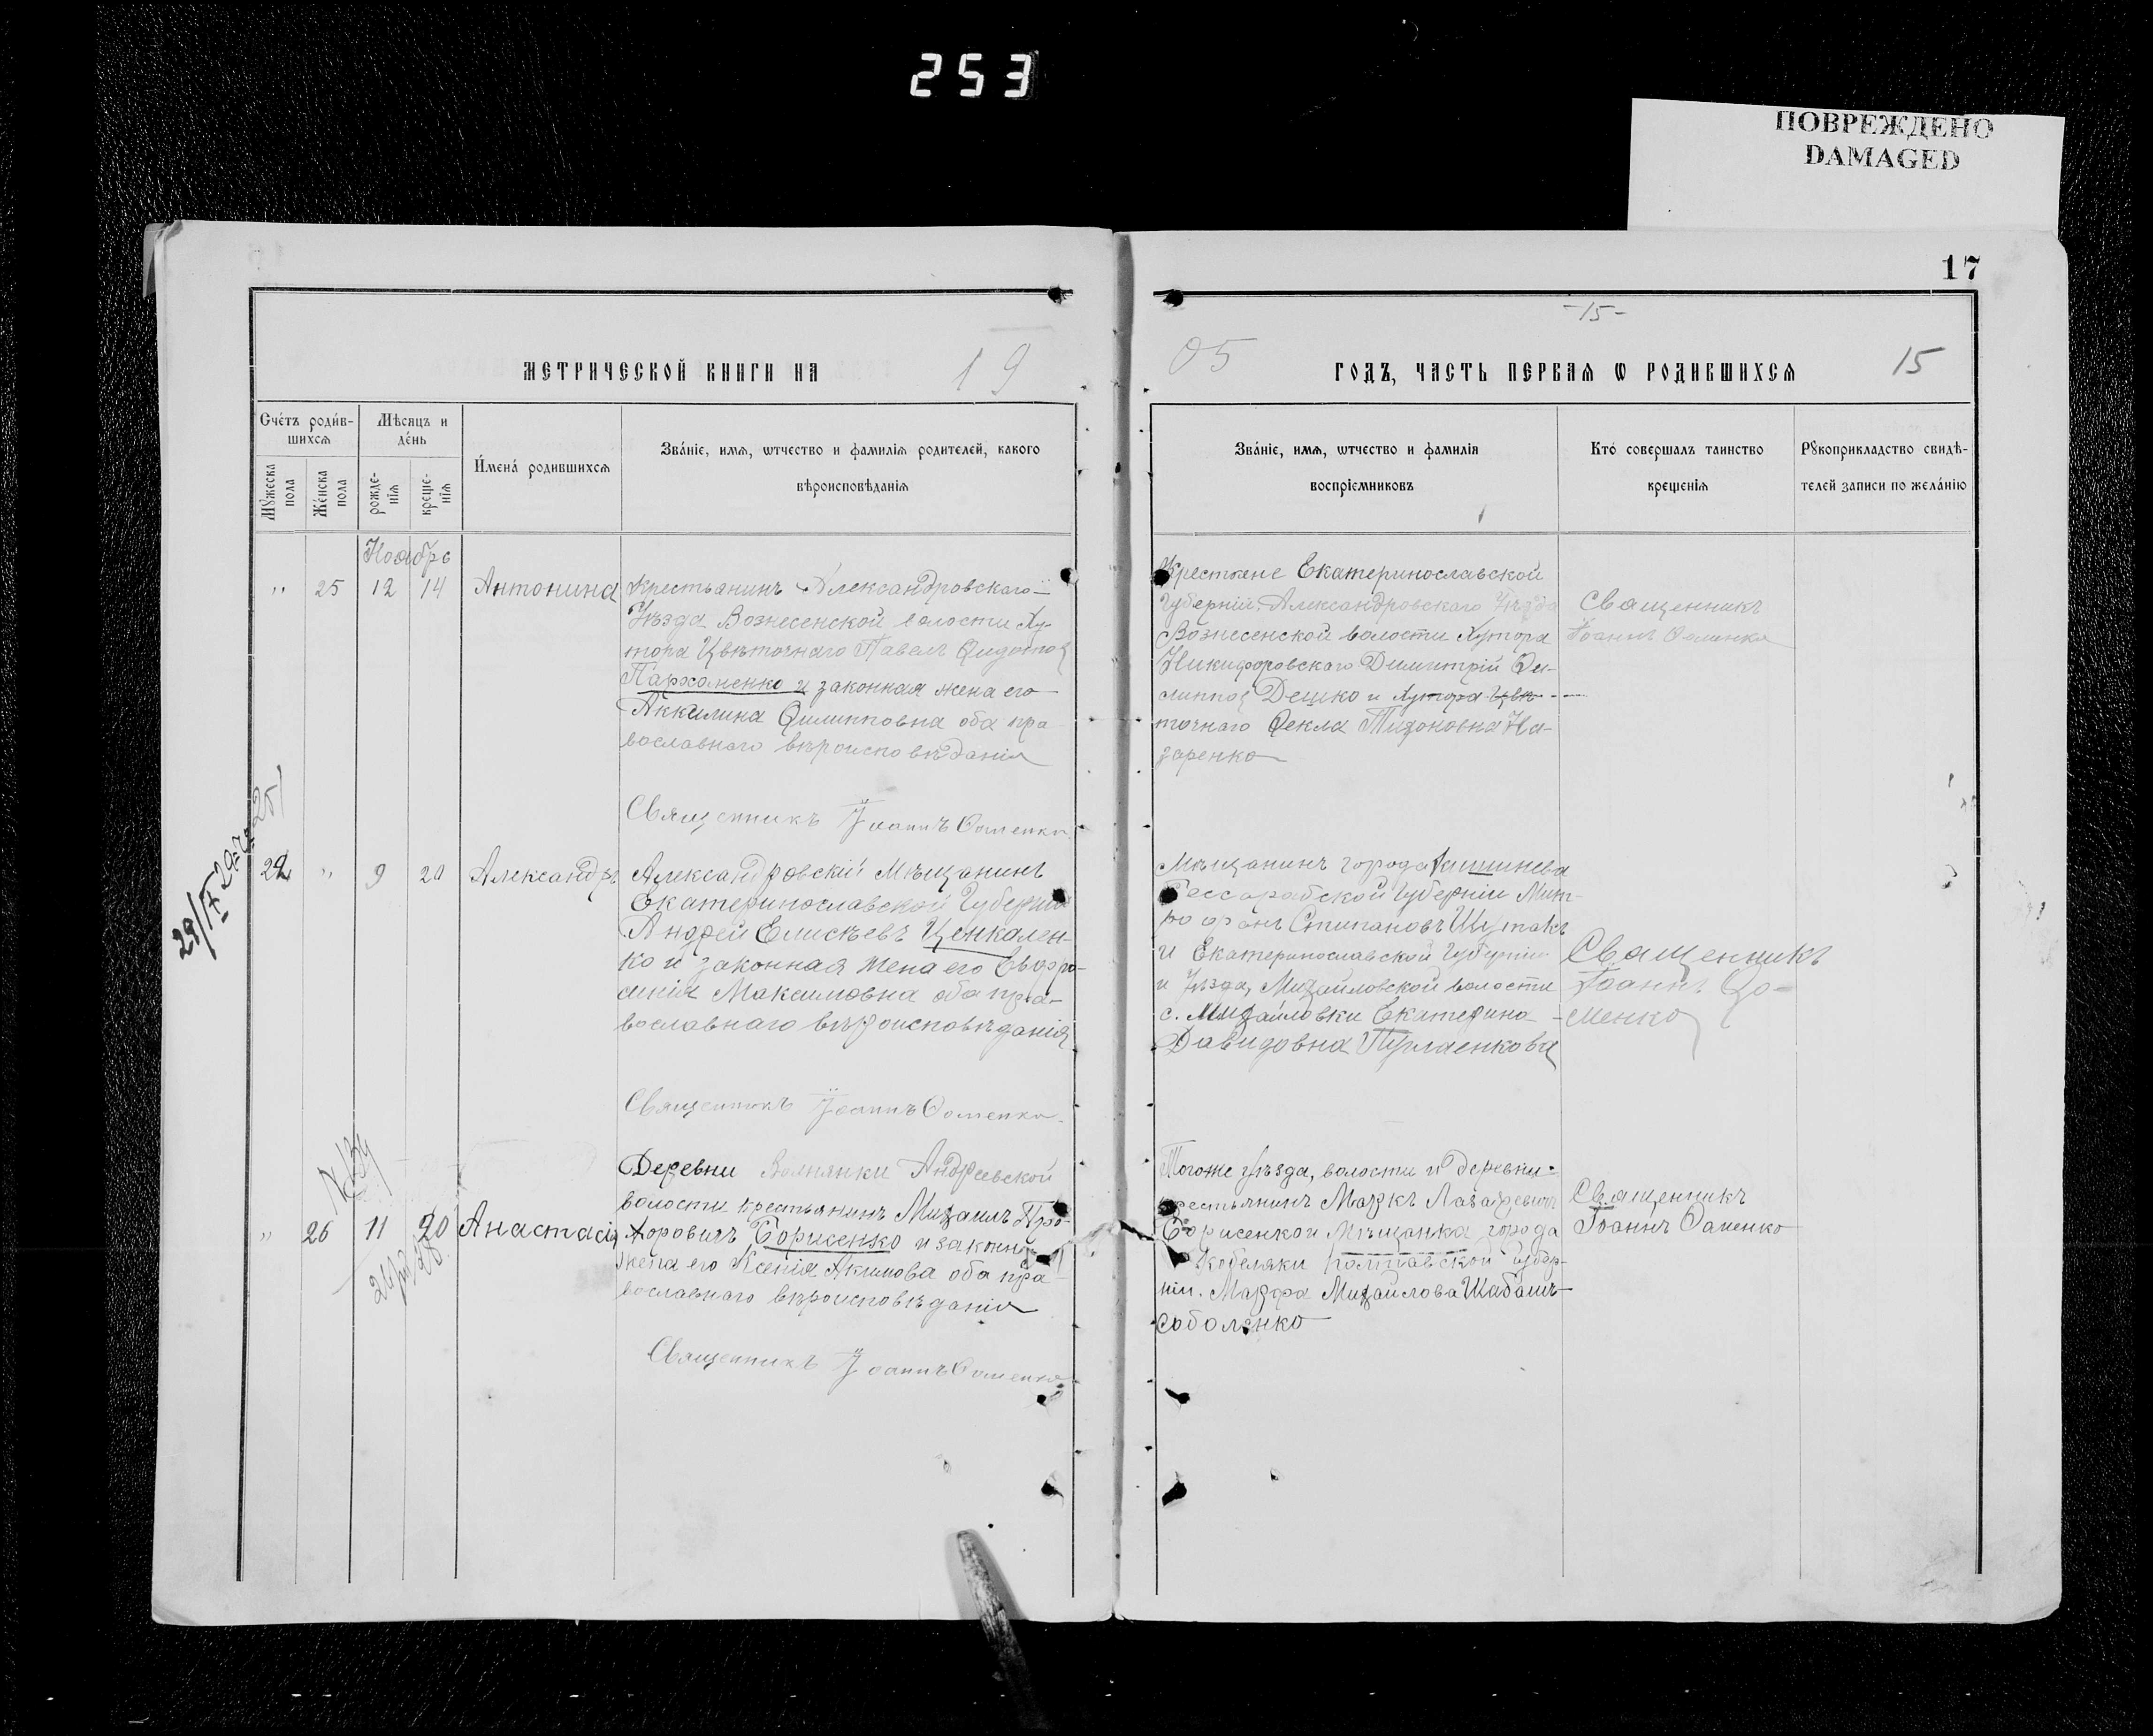 253
ПОВРЕЖДЕНО
DAMAGED
17
-15-
МЕТРИЧЕСКОЙ КНИГИ НА 19
05 ГОДЪ, ЧАСТЬ ПЕРВАЯ Ѡ РОДИВШИХСЯ 15
Счétъ роди́в-
шихсѧ
Мѣсяцъ и
дéнь
Мꙋжеска
пола
Жéнска
пола
рожде-
нїѧ
креще-
нїѧ
И́менá родившихсѧ
Звáнїе, имѧ, ѡтчество и фамилїѧ родителей, какого
вѣроисповѣданїѧ
Звáнїе, имѧ, ѡтчество и фамилїѧ
воспрїемниковъ
Ктó совершалъ таинство
крещенїѧ
Рꙋкоприкладство свидѣ-
телей записи по желáнїю
Ноябрь
" 25 12 14 Антонина
Крестьянинъ Александровскаго
Уѣзда Вознесенской волости Ху-
тора Цвѣточнаго Павелъ Ѳедотов
Пархоменко и законная жена его
Аккилина Филипповна оба пра
вославнаго вѣроисповѣданія
Священникъ Іоаннъ Ѳоменко
Крестьяне Екатеринославской
Губерніи, Александровскаго Уѣзда
Вознесенской волости Хутора
Никифоровскаго Димитрій Фи-
липпов Дешко и Хутора Цвѣ-
точнаго Ѳекла Тихоновна На-
заренко
Священникъ
Іоаннъ Ѳоменко
22 " 9 20 Александръ
Александровскій Мѣщанинъ
Екатеринославской Губерніи
Андрей Елисѣевъ Ценкален-
ко и законная жена его Евфро-
синія Максимовна оба пра-
вославнаго вѣроисповѣданія
Священникъ Іоаннъ Ѳоменко
Мѣщанинъ города Кишинева
Бессарабской Губерніи Мит-
рофанъ Стипановъ Шутакъ
и Екатеринославской Губерніи
и Уѣзда, Михайловской волости
с. Михайловки Екатерина
Давидовна
Священникъ
Іоаннъ Ѳо-
менко
" 26 11 20 Анастасія
Деревни Волнянки Андреевской
волости крестьянинъ Михаилъ Про-
хоровичъ Борисенко и законная
жена его Ксенія Акимова оба пра-
вославнаго вѣроисповѣданія
Священникъ Іоаннъ Ѳоменко
Тогоже уѣзда, волости и деревни
крестьянинъ Маркъ Лазаревичъ
Борисенко и Мѣщанка города
Кобеляки Полтавской Губер-
ніи. Марфа Михайлова Шабашъ-
соболенко
Священникъ
Іоаннъ Ѳоменко